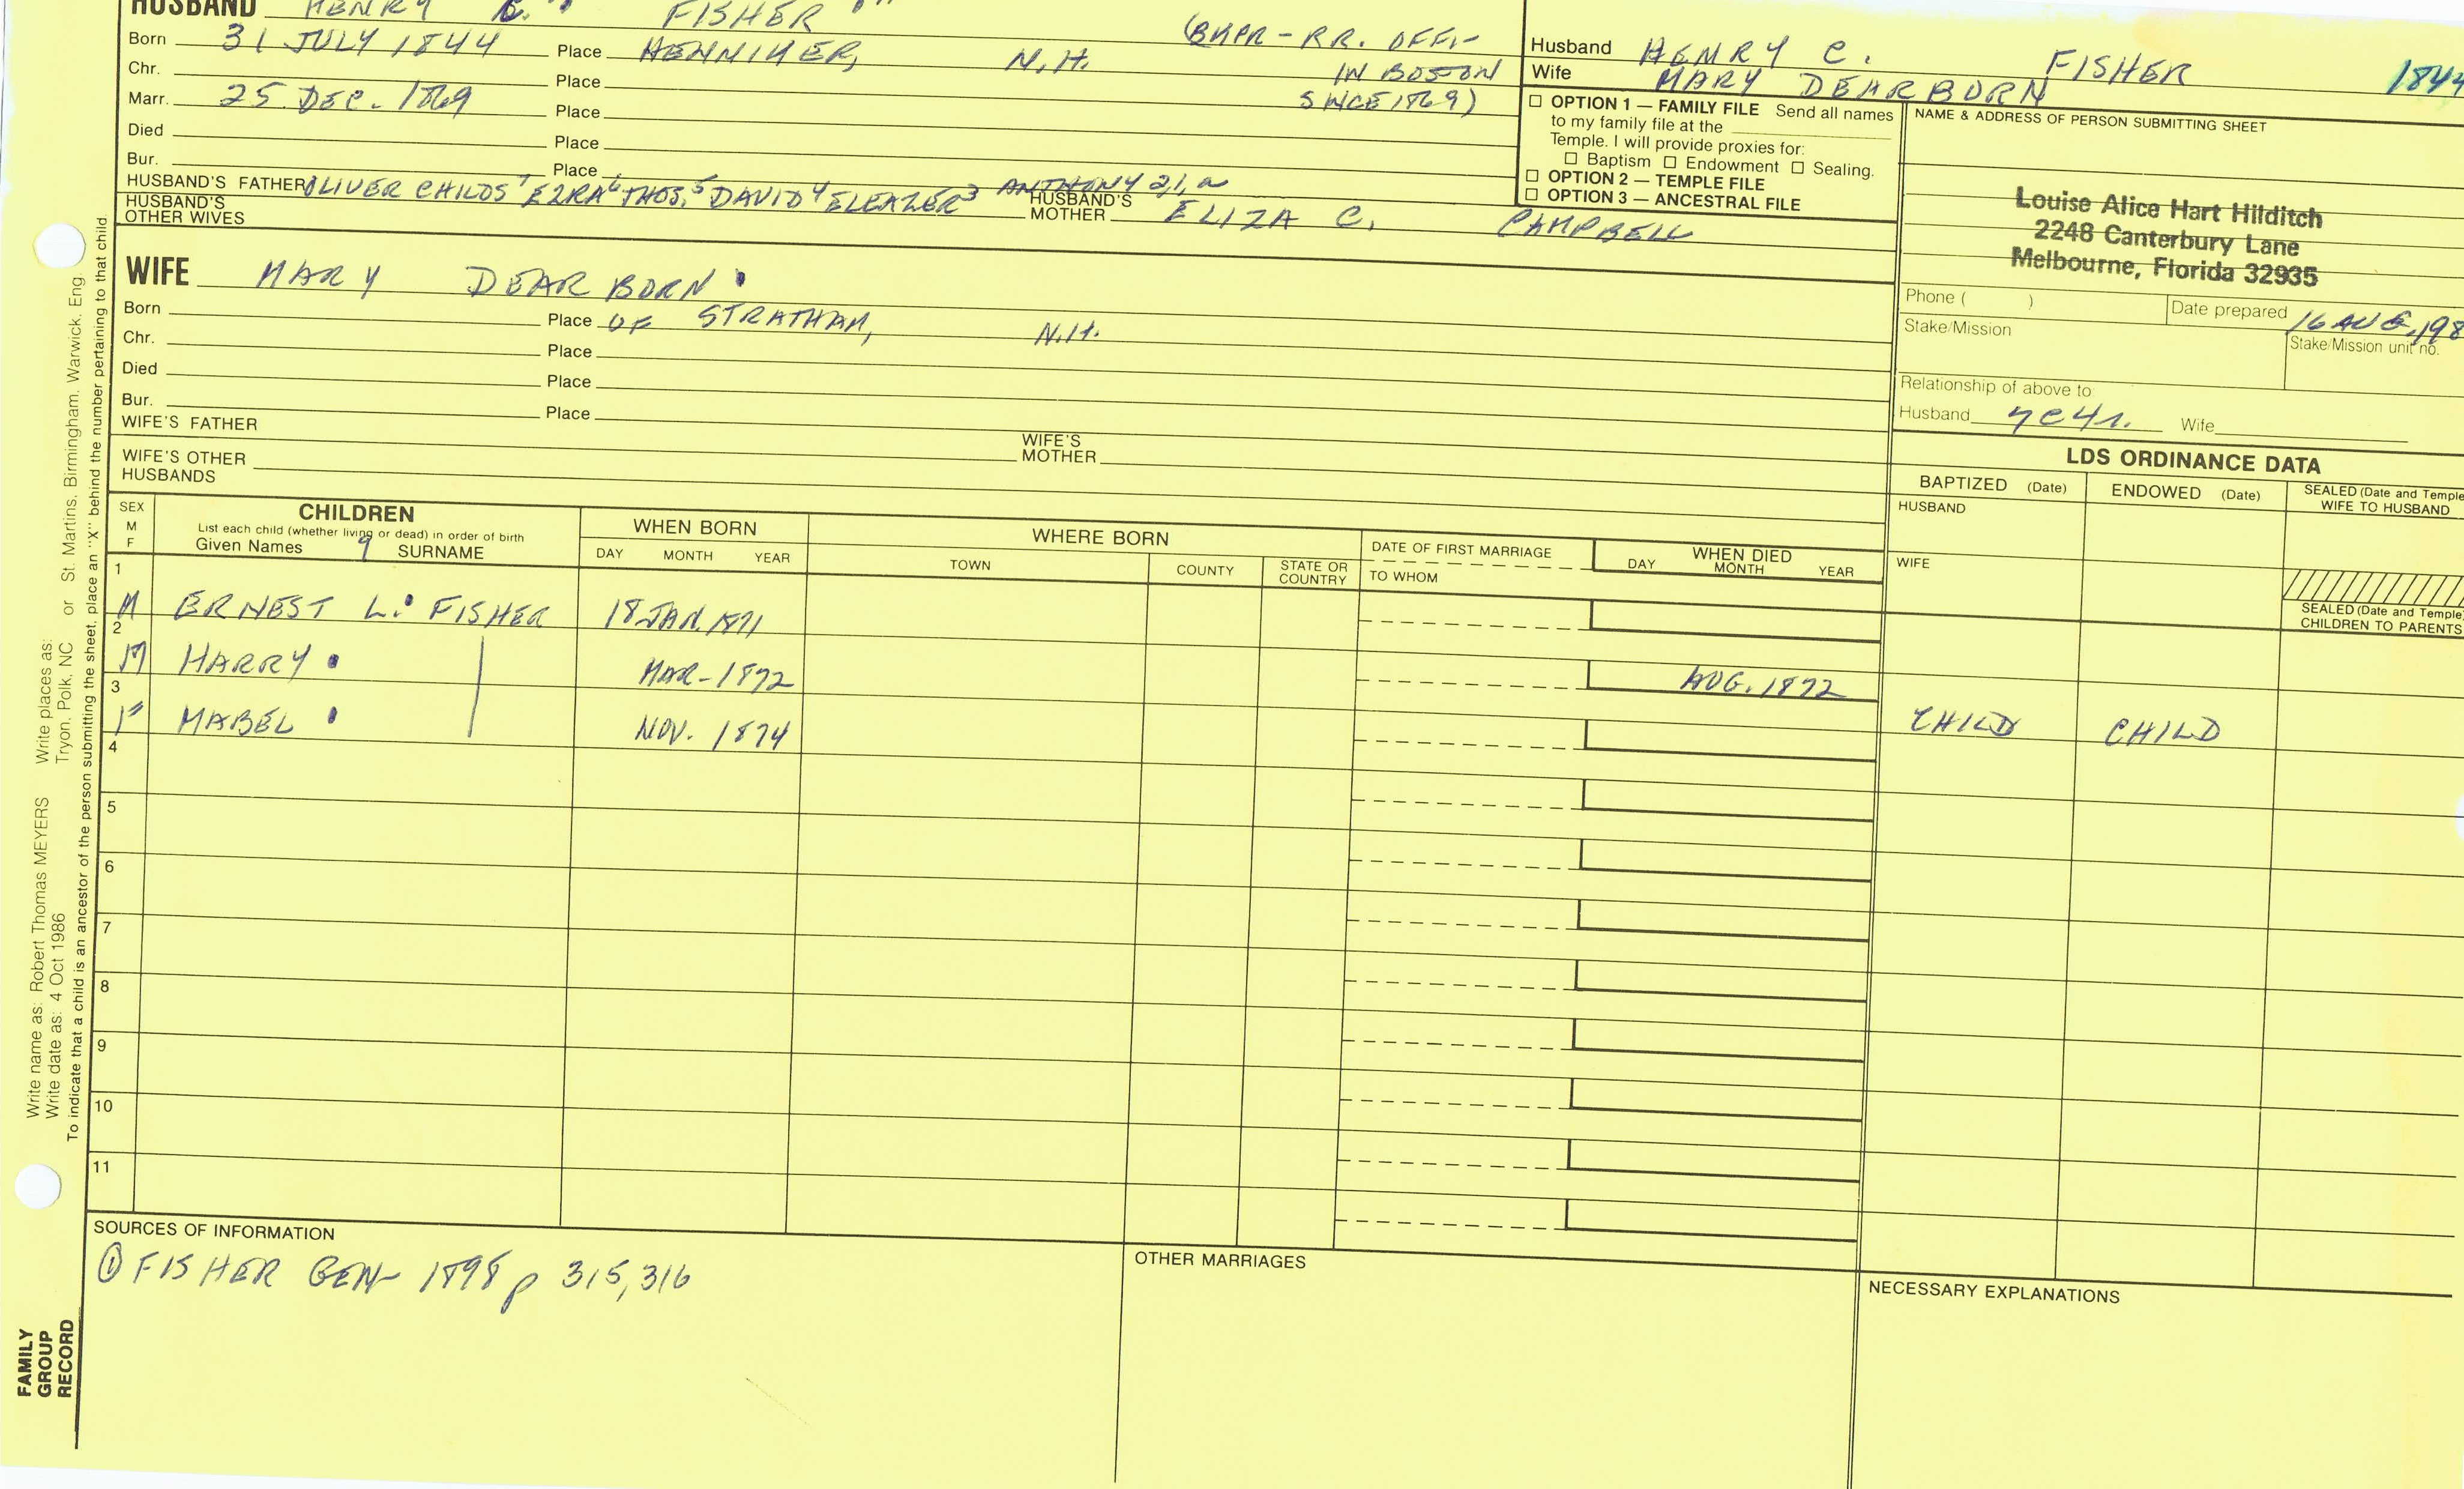 HUSBAND HENRY C. FISHER
Born 31 JULY 1844 Place HENNIKER, N.H. (BKPR - RR. OFF. -
Chr. Place IN BOSTON
Marr. 25 DEC. 1869 Place SINCE 1869)
Died Place
Bur. Place
HUSBAND'S FATHER OLIVER CHILDS 7 EZRA 6 THOS. 5 DAVID 4 ELEAZER 3 ANTHONY 2, 1, a
HUSBAND'S OTHER WIVES
HUSBAND'S MOTHER ELIZA C. CAMPBELL
Husband HENRY C. FISHER 1844
Wife MARY DEARBORN
☐ OPTION 1 — FAMILY FILE Send all names
to my family file at the
Temple. I will provide proxies for:
☐ Baptism ☐ Endowment ☐ Sealing.
☐ OPTION 2 — TEMPLE FILE
☐ OPTION 3 — ANCESTRAL FILE
NAME & ADDRESS OF PERSON SUBMITTING SHEET
Louise Alice Hart Hilditch
2248 Canterbury Lane
Melbourne, Florida 32935
Phone ( )
Date prepared 16 AUG, 198
Stake/Mission
Stake/Mission unit no.
Relationship of above to:
Husband 7C4r. Wife
WIFE MARY DEARBORN
Born Place OF STRATHAM, N.H.
Chr. Place
Died Place
Bur. Place
WIFE'S FATHER
WIFE'S MOTHER
WIFE'S OTHER HUSBANDS
LDS ORDINANCE DATA
BAPTIZED (Date) ENDOWED (Date) SEALED (Date and Temple
WIFE TO HUSBAND
HUSBAND
WIFE
SEALED (Date and Temple)
CHILDREN TO PARENTS
SEX
M
F
CHILDREN
List each child (whether living or dead) in order of birth
Given Names 9 SURNAME
WHEN BORN
DAY MONTH YEAR
WHERE BORN
TOWN COUNTY STATE OR COUNTRY
DATE OF FIRST MARRIAGE
TO WHOM
WHEN DIED
DAY MONTH YEAR
1
M ERNEST L. FISHER 18 JAN. 1871
2
M HARRY MAR - 1872 AUG. 1872
3
F MABEL NOV. 1874 CHILD CHILD
4
5
6
7
8
9
10
11
SOURCES OF INFORMATION
① FISHER GEN - 1898 p 315, 316
OTHER MARRIAGES
NECESSARY EXPLANATIONS
FAMILY
GROUP
RECORD
Write name as: Robert Thomas MEYERS Write places as:
Write date as: 4 Oct 1986 Tryon, Polk, NC or St. Martins, Birmingham, Warwick, Eng.
To indicate that a child is an ancestor of the person submitting the sheet, place an "X" behind the number pertaining to that child.